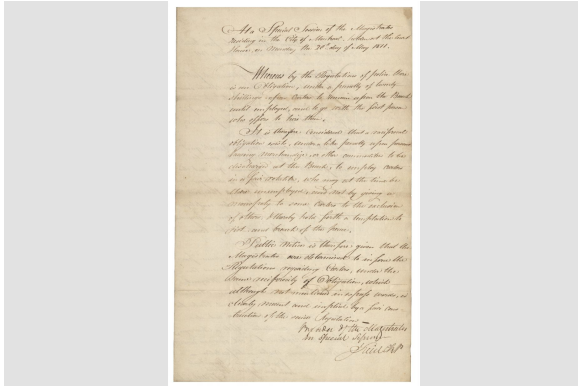 At a Special Session of the Magistrates
residing in the City of Montreal, holden at the Court
House, on Monday the 20th day of May 1811.
Whereas by the Regulations of Police there
is an Obligation, under a penalty of twenty
Shillings upon Carters to remain upon the Stands
until employed, and to go with the first person
who offers to hire them.
It is therefore considered that a reciprocal
obligation exists, under a like penalty upon persons
having merchandize or other commodities to be
discharged at the Beach, to employ Carters
who may at the time be
there unemployed, and not by giving a
monopoly to some Carters to the exclusion
of others, thereby hold forth a temptation to
riot and breach of the peace.
Public Notice is therefore given that the
Magistrates are determined to enforce the
Regulations regarding Carters, under the
same reciprocity of Obligation, which
although not mentioned in express words, is
clearly meant and implied by a fair con-
struction of the said Regulation.
By order of the Magistrates
in Special Session